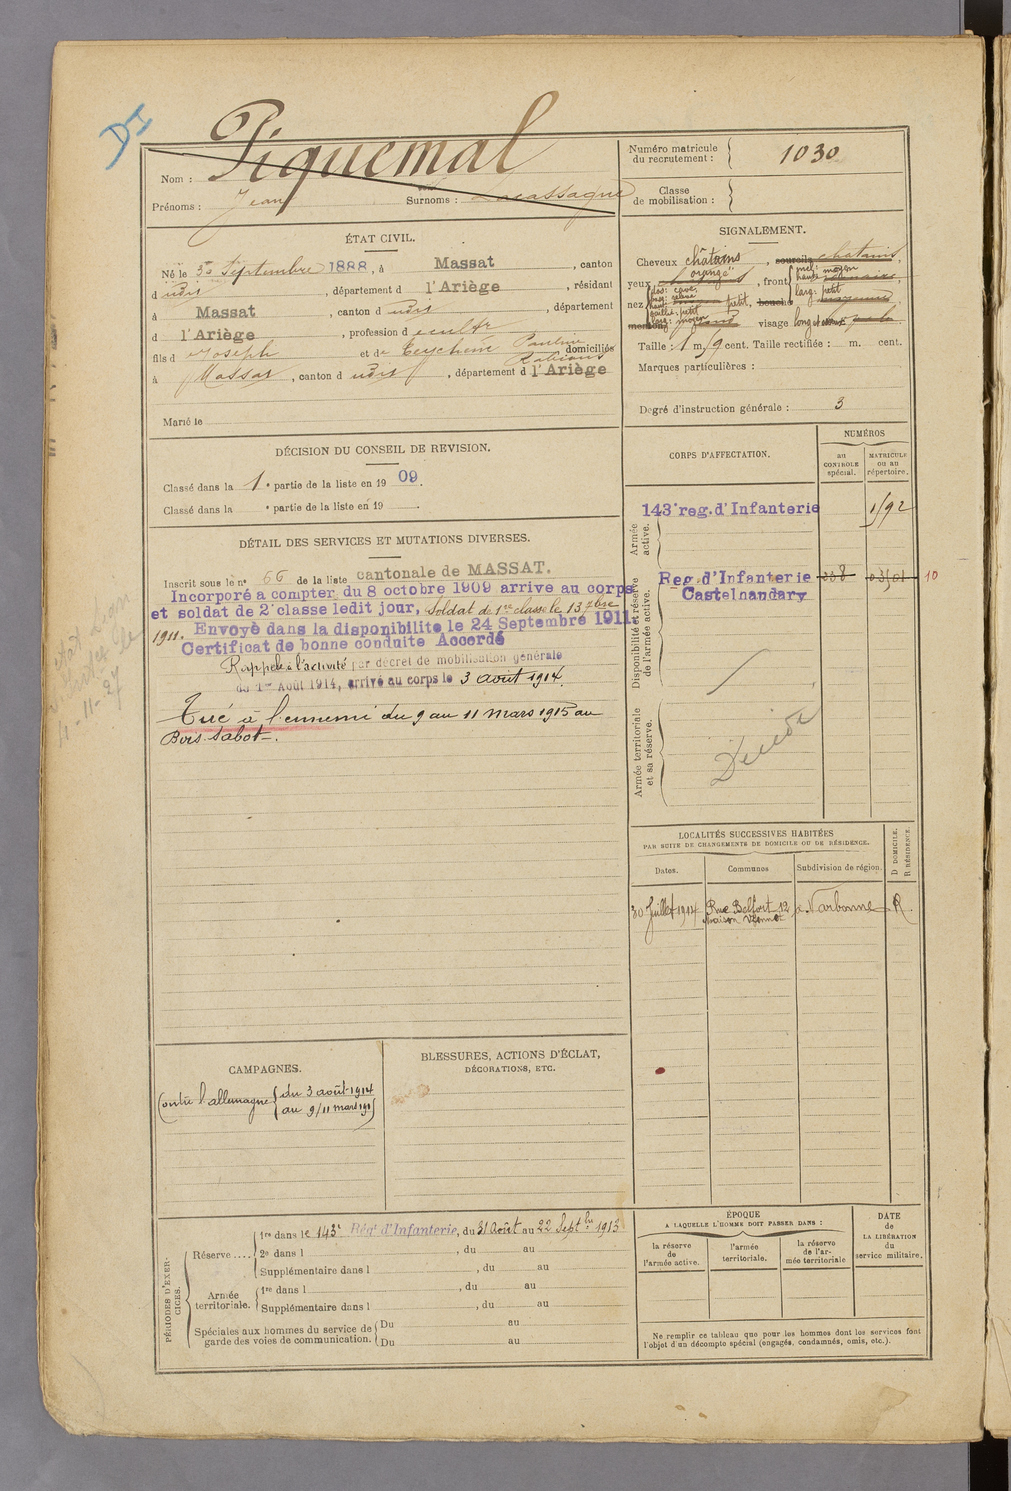 DI
Piquemal
Nom :
Prénoms : Jean Surnoms : Lacassagne
Numéro matricule du recrutement : 1030
Classe de mobilisation :
ÉTAT CIVIL.
Né le 30 Septembre 1888, à Massat, canton
d udit, département d l'Ariège, résidant
à Massat, canton d udit, département
d l'Ariège, profession de cultr
fils d Joseph et de Teychenne Pauline domiciliés
à Massat, canton d udit, département d l'Ariège
Marié le
SIGNALEMENT.
Cheveux châtains, sourcils chatains,
yeux orangé, front incl: moyen haut: larg: petit
nez dos: cave, base: relevé haut: saillie: petit larg: moyen petit, bouche moyenne,
menton rond visage long
Taille : 1 m. 59 cent. Taille rectifiée : m. cent.
Marques particulières :
Degré d'instruction générale : 3
DÉCISION DU CONSEIL DE REVISION.
Classé dans la 1e partie de la liste en 1909.
Classé dans la e partie de la liste en 19 .
DÉTAIL DES SERVICES ET MUTATIONS DIVERSES.
Inscrit sous le no 66 de la liste cantonale de MASSAT.
Incorporé a compter du 8 octobre 1909 arrive au corps
et soldat de 2e classe ledit jour, Soldat de 1re classe le 13 7bre
1911. Envoyé dans la disponibilite le 24 Septembre 1911.
Certificat de bonne conduite Accordé
Rappelé à l'activité par décret de mobilisation générale
du 1er Août 1914, arrivé au corps le 3 août 1914.
Tué à l'ennemi du 9 au 11 mars 1915 au
Bois Sabot.
4-11-27
CORPS D'AFFECTATION.
NUMÉROS
au CONTROLE spécial.
MATRICULE ou au répertoire.
Armée active.
143e reg. d'Infanterie
Disponibilité et réserve de l'armée active.
Reg. d'Infanterie 10
Castelnaudary
Armée territoriale et sa réserve.
Décédé
LOCALITÉS SUCCESSIVES HABITÉES
PAR SUITE DE CHANGEMENTS DE DOMICILE OU DE RÉSIDENCE.
Dates. Communes Subdivision de région. D DOMICILE. R RÉSIDENCE.
30 Juillet 1914 Rue Belfort 12 Narbonne R
CAMPAGNES.
Contre l'allemagne du 3 août 1914
au 9/11 mars 1915
BLESSURES, ACTIONS D'ÉCLAT,
DÉCORATIONS, ETC.
PÉRIODES D'EXERCICES.
Réserve.... 1re dans le 143e Régt d'Infanterie, du 31 Août au 22 Septbre 1913
2e dans l , du au
Supplémentaire dans l , du au
Armée territoriale. 1re dans l , du au
Supplémentaire dans l , du au
Spéciales aux hommes du service de garde des voies de communication. Du au
Du au
ÉPOQUE
A LAQUELLE L'HOMME DOIT PASSER DANS :
la réserve de l'armée active.
l'armée territoriale.
la réserve de l'armée territoriale
DATE de LA LIBÉRATION du service militaire.
Ne remplir ce tableau que pour les hommes dont les services font
l'objet d'un décompte spécial (engagés, condamnés, omis, etc.).